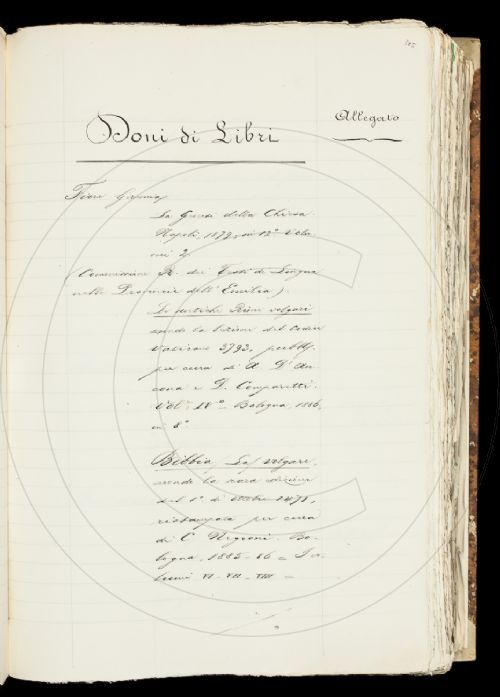 305
Allegato
Doni di Libri
Fiore
La della Chiesa.
Napoli, 1879, in 12° Volu
mi 2.
(Commissione R. dei Testi di Lingua
nelle Provincie dell' Emilia).
Le antiche Rime volgari
secondo la lezione del Codice
Vaticano 3793, pubbl.
per cura di A. D'An
cona e D. Comparetti.
Vol. IV° - Bologna, 1886,
in 8°
Bibbia (La) volgare,
secondo la rara edizione
del 1° di Ottobre 1471,
ristampata per cura
di C. Negroni. Bo-
logna, 1885-86 = Vo
lumi VI - VII - VIII =